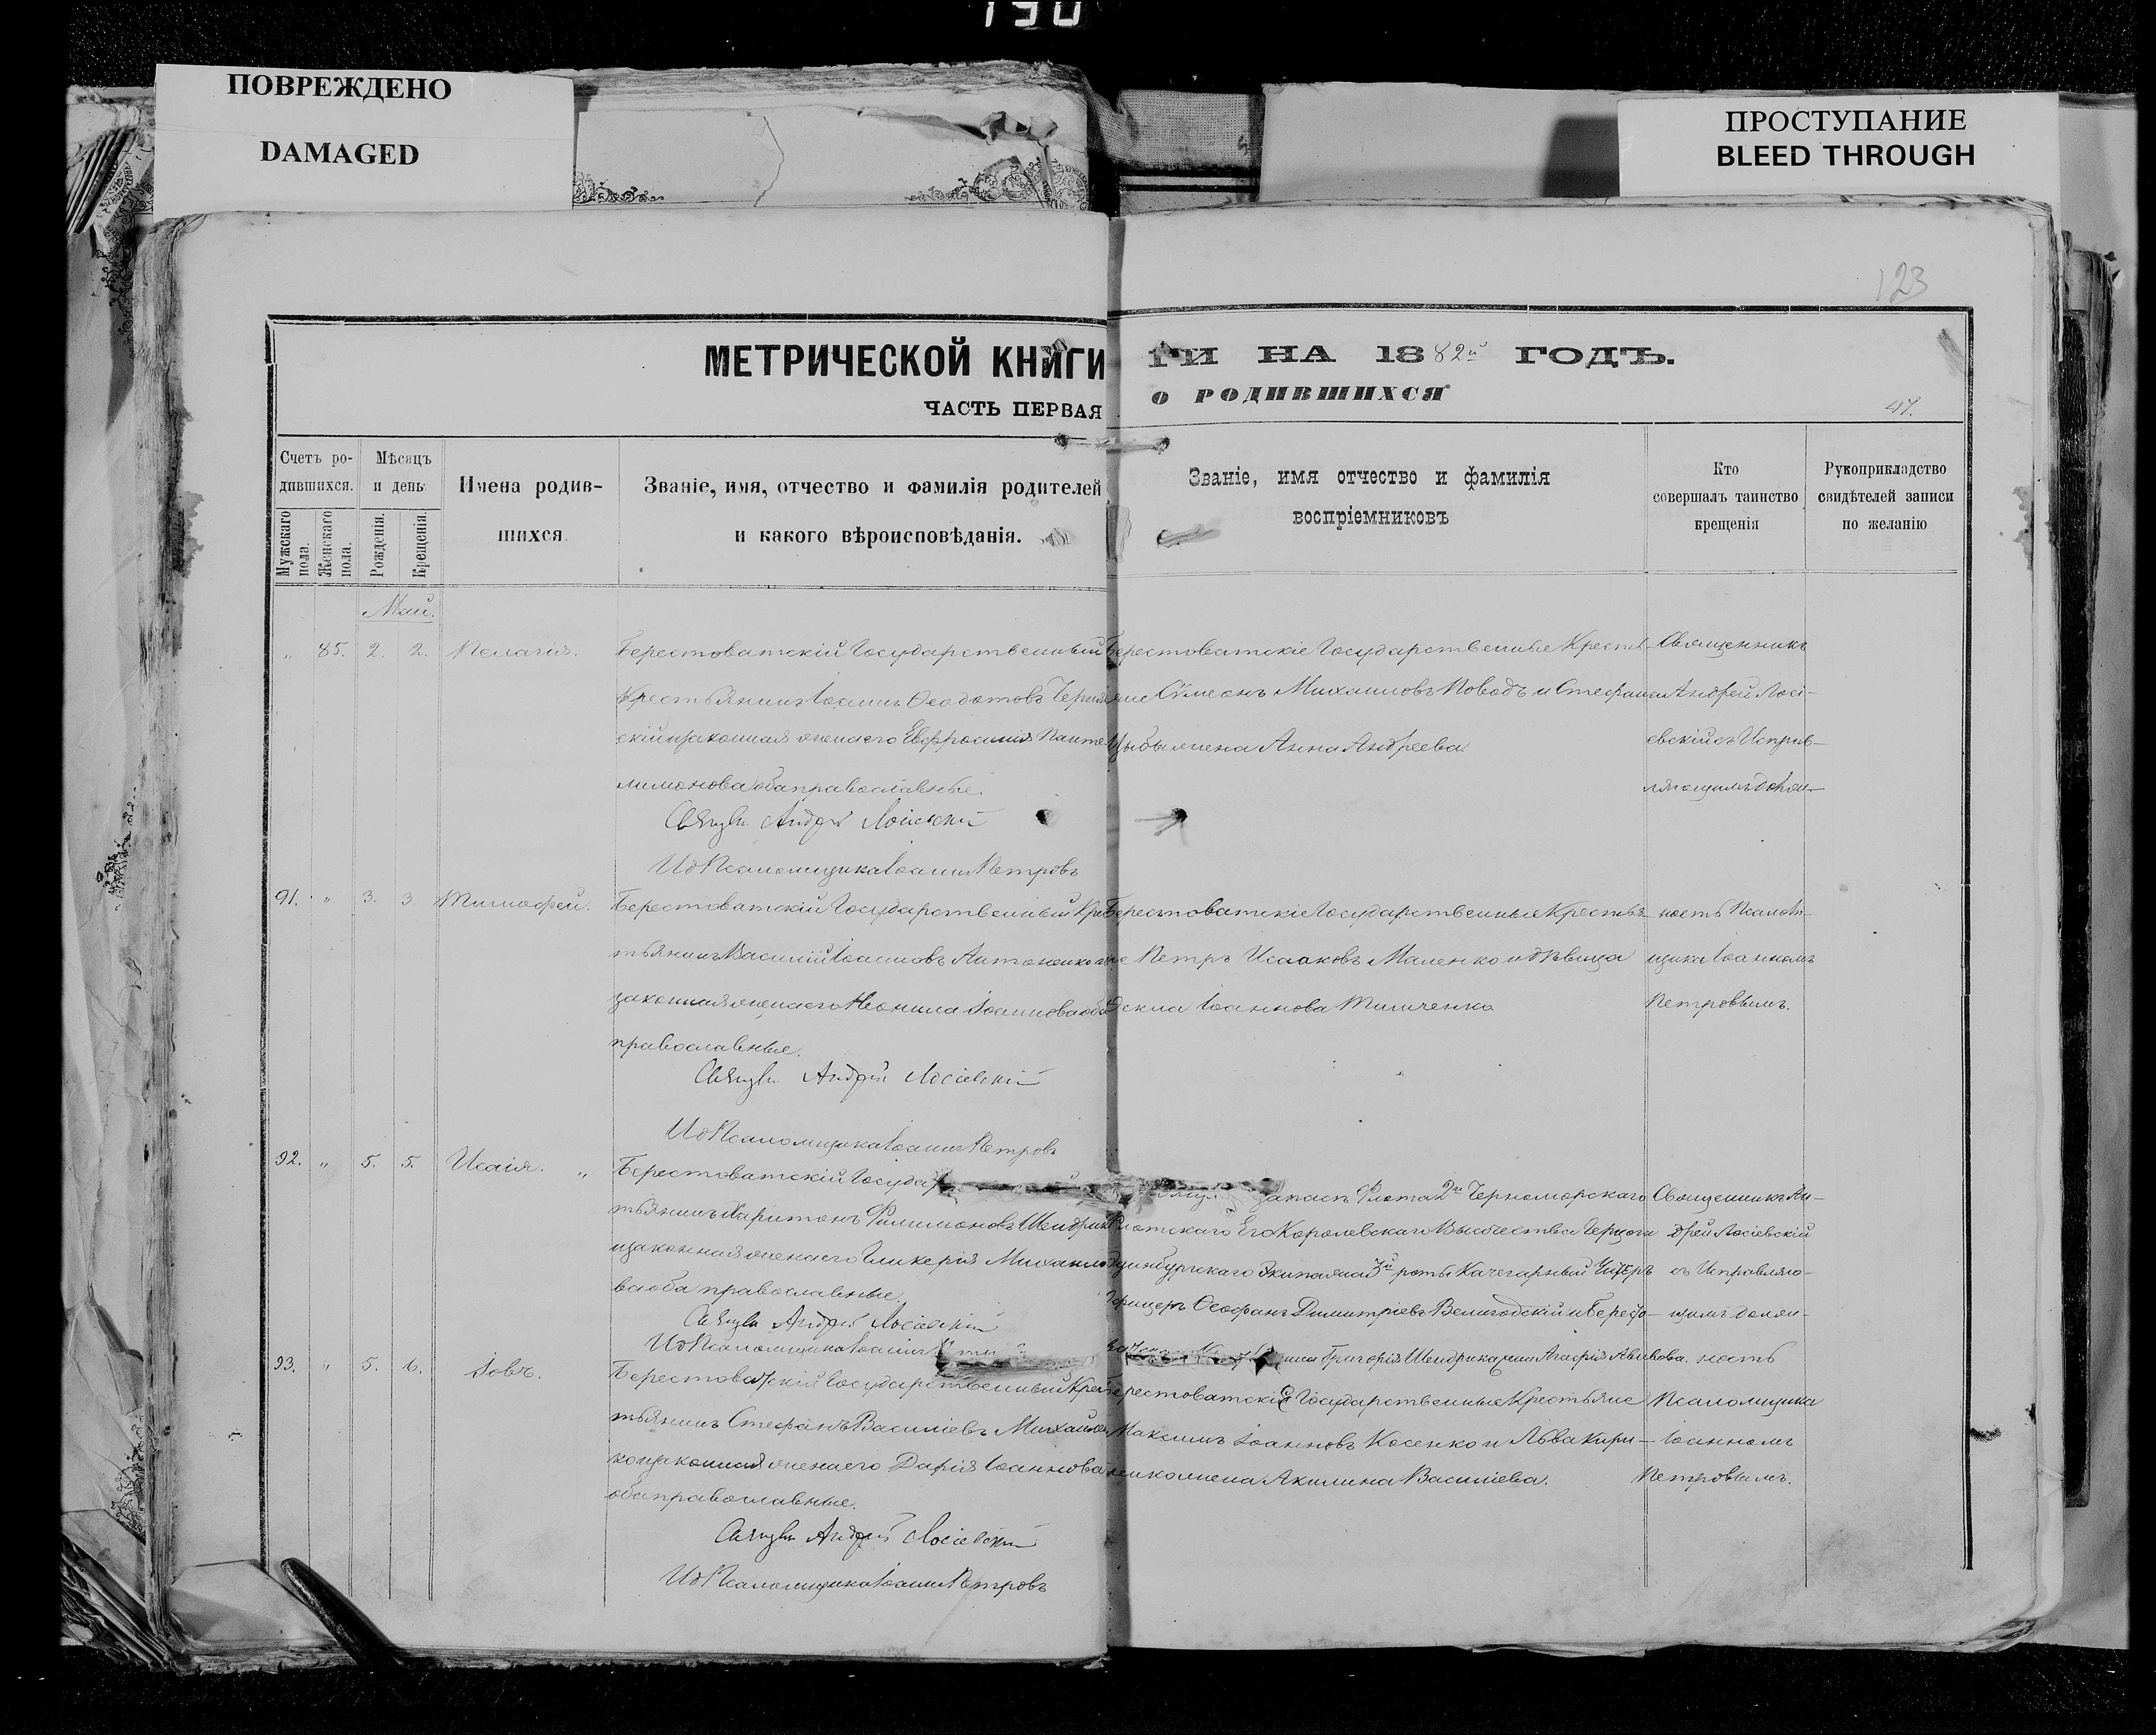 190
ПОВРЕЖДЕНО
DAMAGED
ПРОСТУПАНИЕ
BLEED THROUGH
123
МЕТРИЧЕСКОЙ КНИГИ
ГИ НА 1882й ГОДЪ.
ЧАСТЬ ПЕРВАЯ
О РОДИВШИХСЯ
47.
Счетъ ро-
дившихся.
Мужскаго пола.
Женскаго пола.
Мѣсяцъ
и день.
Рожденія.
Крещенія.
Имена родив-
шихся.
Званіе, имя, отчество и фамилія родителей
и какого вѣроисповѣданія.
Званіе, имя отчество и фамилія
воспріемниковъ
Кто
совершалъ таинство
крещенія
Рукоприкладство
свидѣтелей записи
по желанію
Май.
„ 85. 2. 2. Пелагія.
Берестоватскій Государственный
Крестьянинъ Іоаннъ Ѳеодотовъ
скій и законная жена его Евфросинія Панте-
лимонова оба православные.
Свящ. Андрей Лосіевскій
ИД Псаломщика Іоаннъ Петровъ
Берестоватскіе Государственные Кресть-
яне Сѵмеонъ Михаиловъ и
жена Анна Андреева.
Священникъ
Андрей Лосі-
евскій съ Исправ-
ляющимъ долж-
91. „ 3. 3. Тимофей.
Берестоватскій Государственный Крес-
тьянинъ Василій Іоанновъ Антоненко и
законная жена его Неонила Іоаннова оба
православные.
Свящ. Андрей Лосіевскій
ИД Псаломщика Іоаннъ Петровъ
Берестоватскіе Государственные Крестья-
не Петръ Исааковъ Маленко и дѣвица
Іоаннова Тимченко
ность Псалом-
щика Іоанномъ
Петровымъ.
92. „ 5. 5. Исаія. „
Берестоватскій
тьянинъ Харитонъ Филимоновъ Шендрик
и законная жена его Гликерія Михаило-
ва оба православные.
Свящ. Андрей Лосіевскій
ИД Псаломщика Іоаннъ
Флота 2го Черноморскаго
Флотскаго Его Королевскаго Высочества Герцога
Эдинбургскаго Экипажа 3й роты Качегарный Унтеръ
Офицеръ Ѳеофанъ Димитріевъ и Бересто-
Григорія Шендрика жена Агафія
Священникъ Ан-
дрей Лосіевскій
съ Исправляю-
щимъ долж-
ность
93. „ 5. 6. Іовъ.
Берестоватскій Государственный Крес-
тьянинъ Стефанъ Василіевъ Михайлен-
ко и законная жена его Дарія Іоаннова
оба православные.
Свящ. Андрей Лосіевскій
ИД Псаломщика Іоаннъ Петровъ
Берестоватскіе Государственные Крестьяне
Максимъ Іоанновъ Косенко и Льва Кири-
ленко жена Акилина Василіева.
Псаломщика
Іоанномъ
Петровымъ.